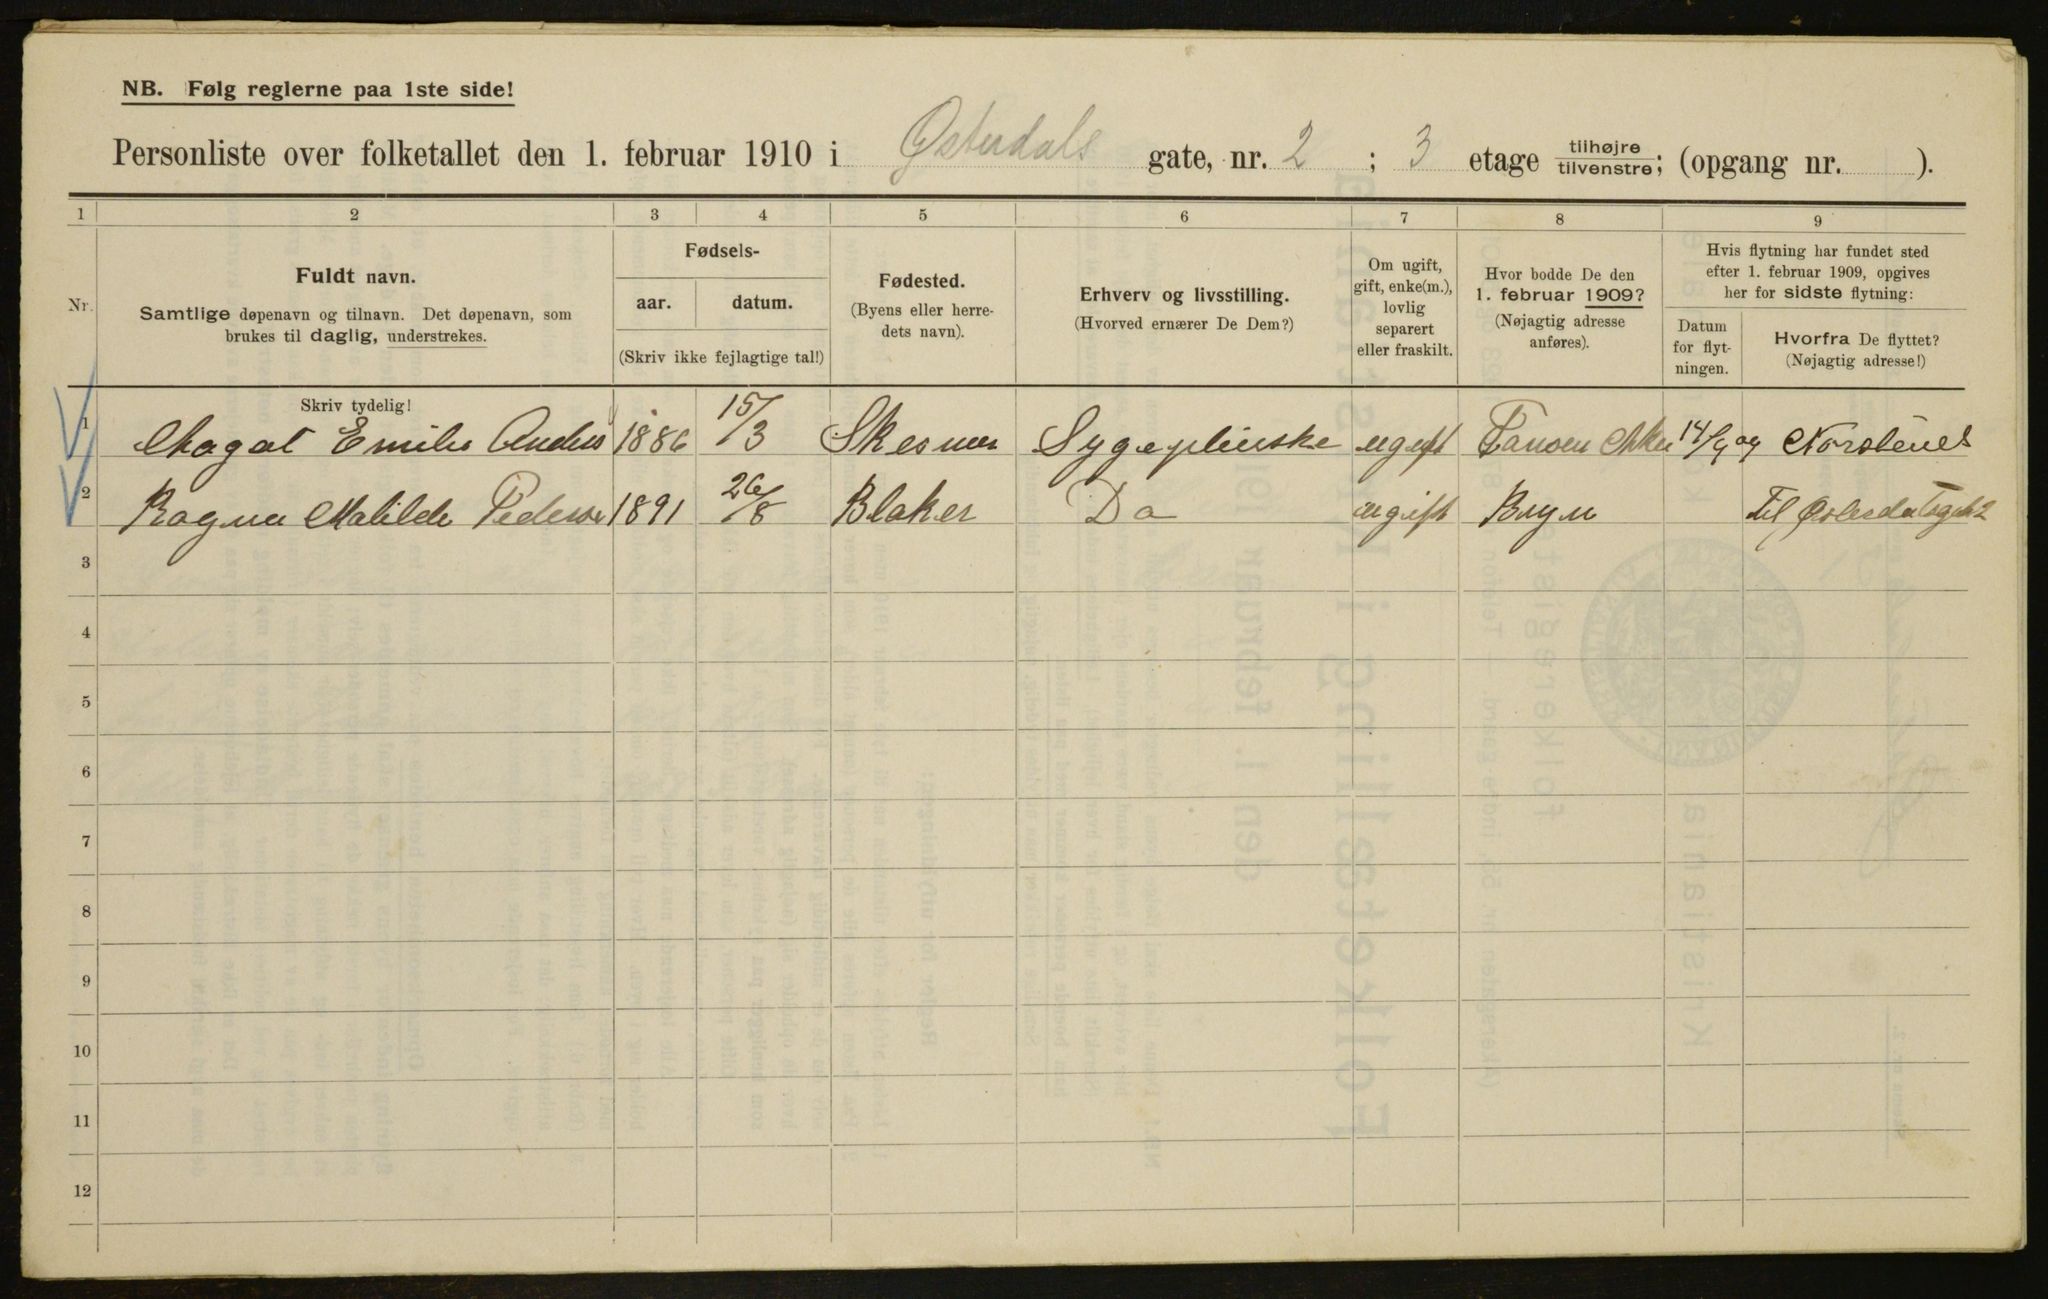 NB. Følg reglerne paa 1ste side!
Personliste over folketallet den 1. februar 1910 i Østerdals gate, nr. 2 ; 3 etage tilhøjre/tilvenstre; (opgang nr. ).
1 2 3 4 5 6 7 8 9
Nr.
Fuldt navn.
Samtlige døpenavn og tilnavn. Det døpenavn, som
brukes til daglig, understrekes.
Skriv tydelig!
Fødsels-
aar. datum.
(Skriv ikke fejlagtige tal!)
Fødested.
(Byens eller herre-
dets navn).
Erhverv og livsstilling.
(Hvorved ernærer De Dem?)
Om ugift,
gift, enke(m.),
lovlig
separert
eller fraskilt.
Hvor bodde De den
1. februar 1909?
(Nøjagtig adresse
anføres).
Hvis flytning har fundet sted
efter 1. februar 1909, opgives
her for sidste flytning:
Datum
for flyt-
ningen.
Hvorfra De flyttet?
(Nøjagtig adresse!)
1 Emilie 1886 15/3 Sygeplerske ugift
2 Ragna Matilde Pederse 1891 26/8 Blaker Do ugift Bryn Til
3
4
5
6
7
8
9
10
11
12